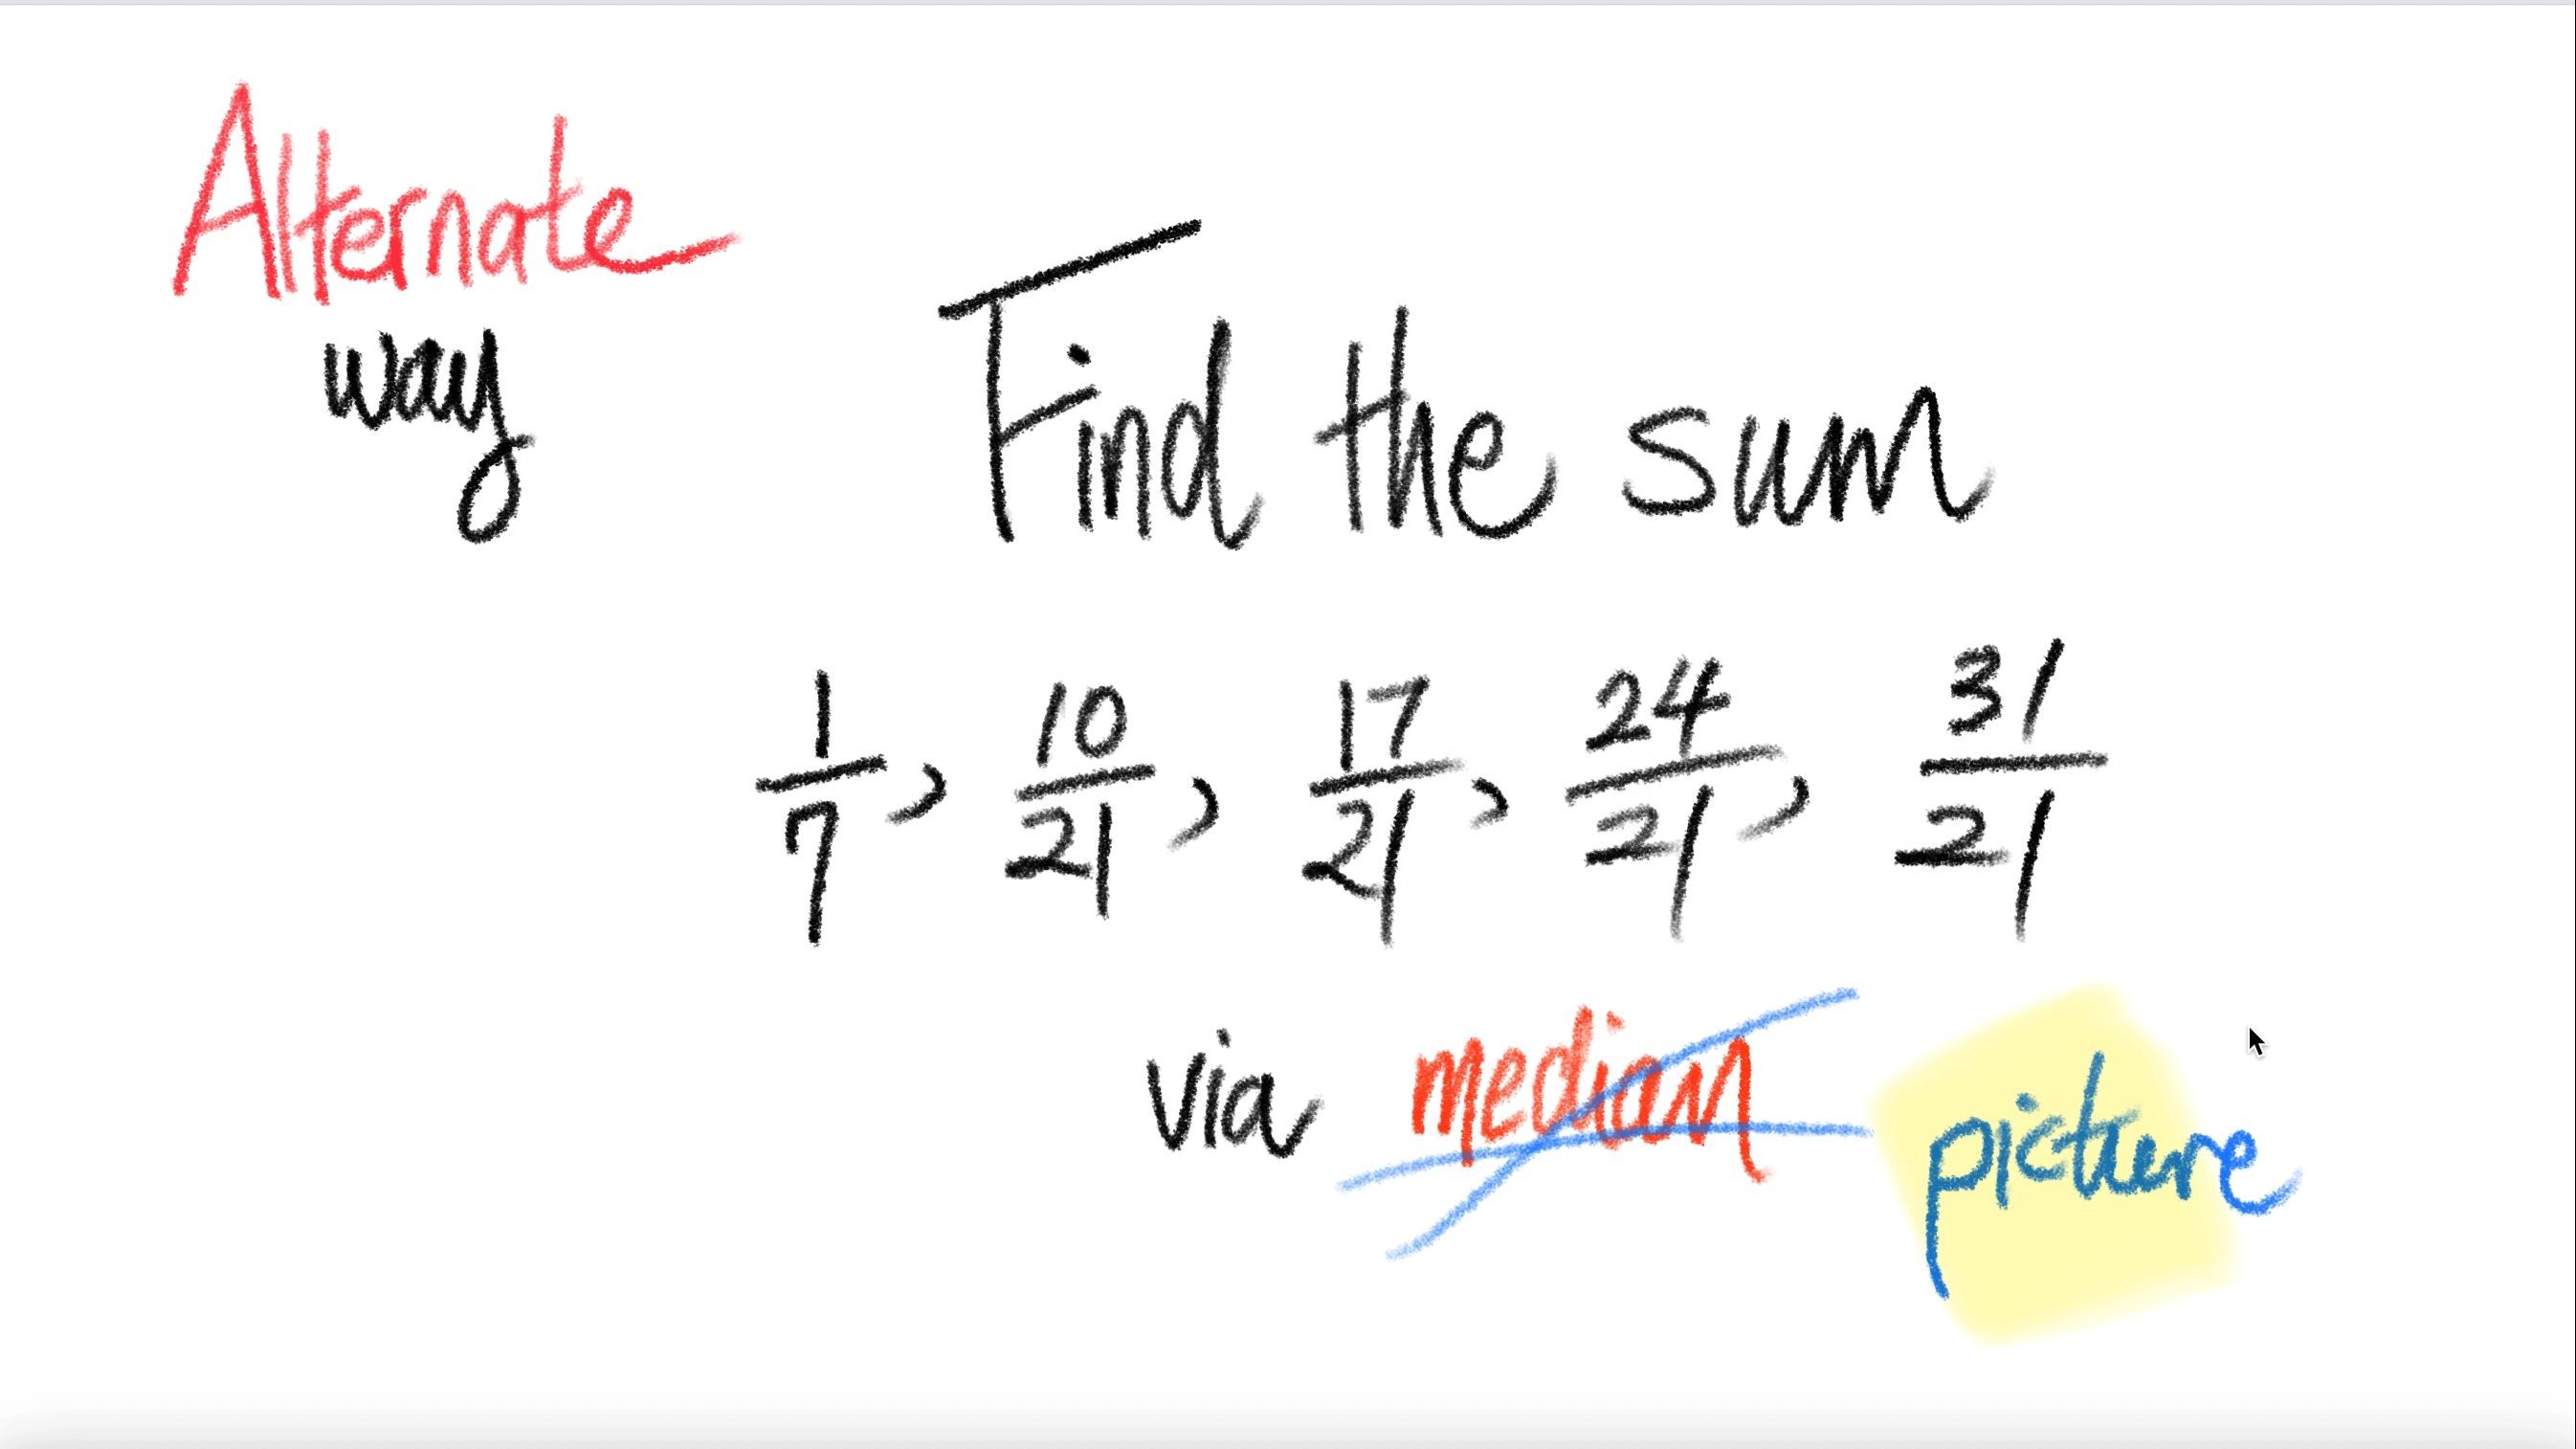 Alternate
way
Find the sum
1/7, 10/21, 17/21, 24/21, 31/21
via median picture